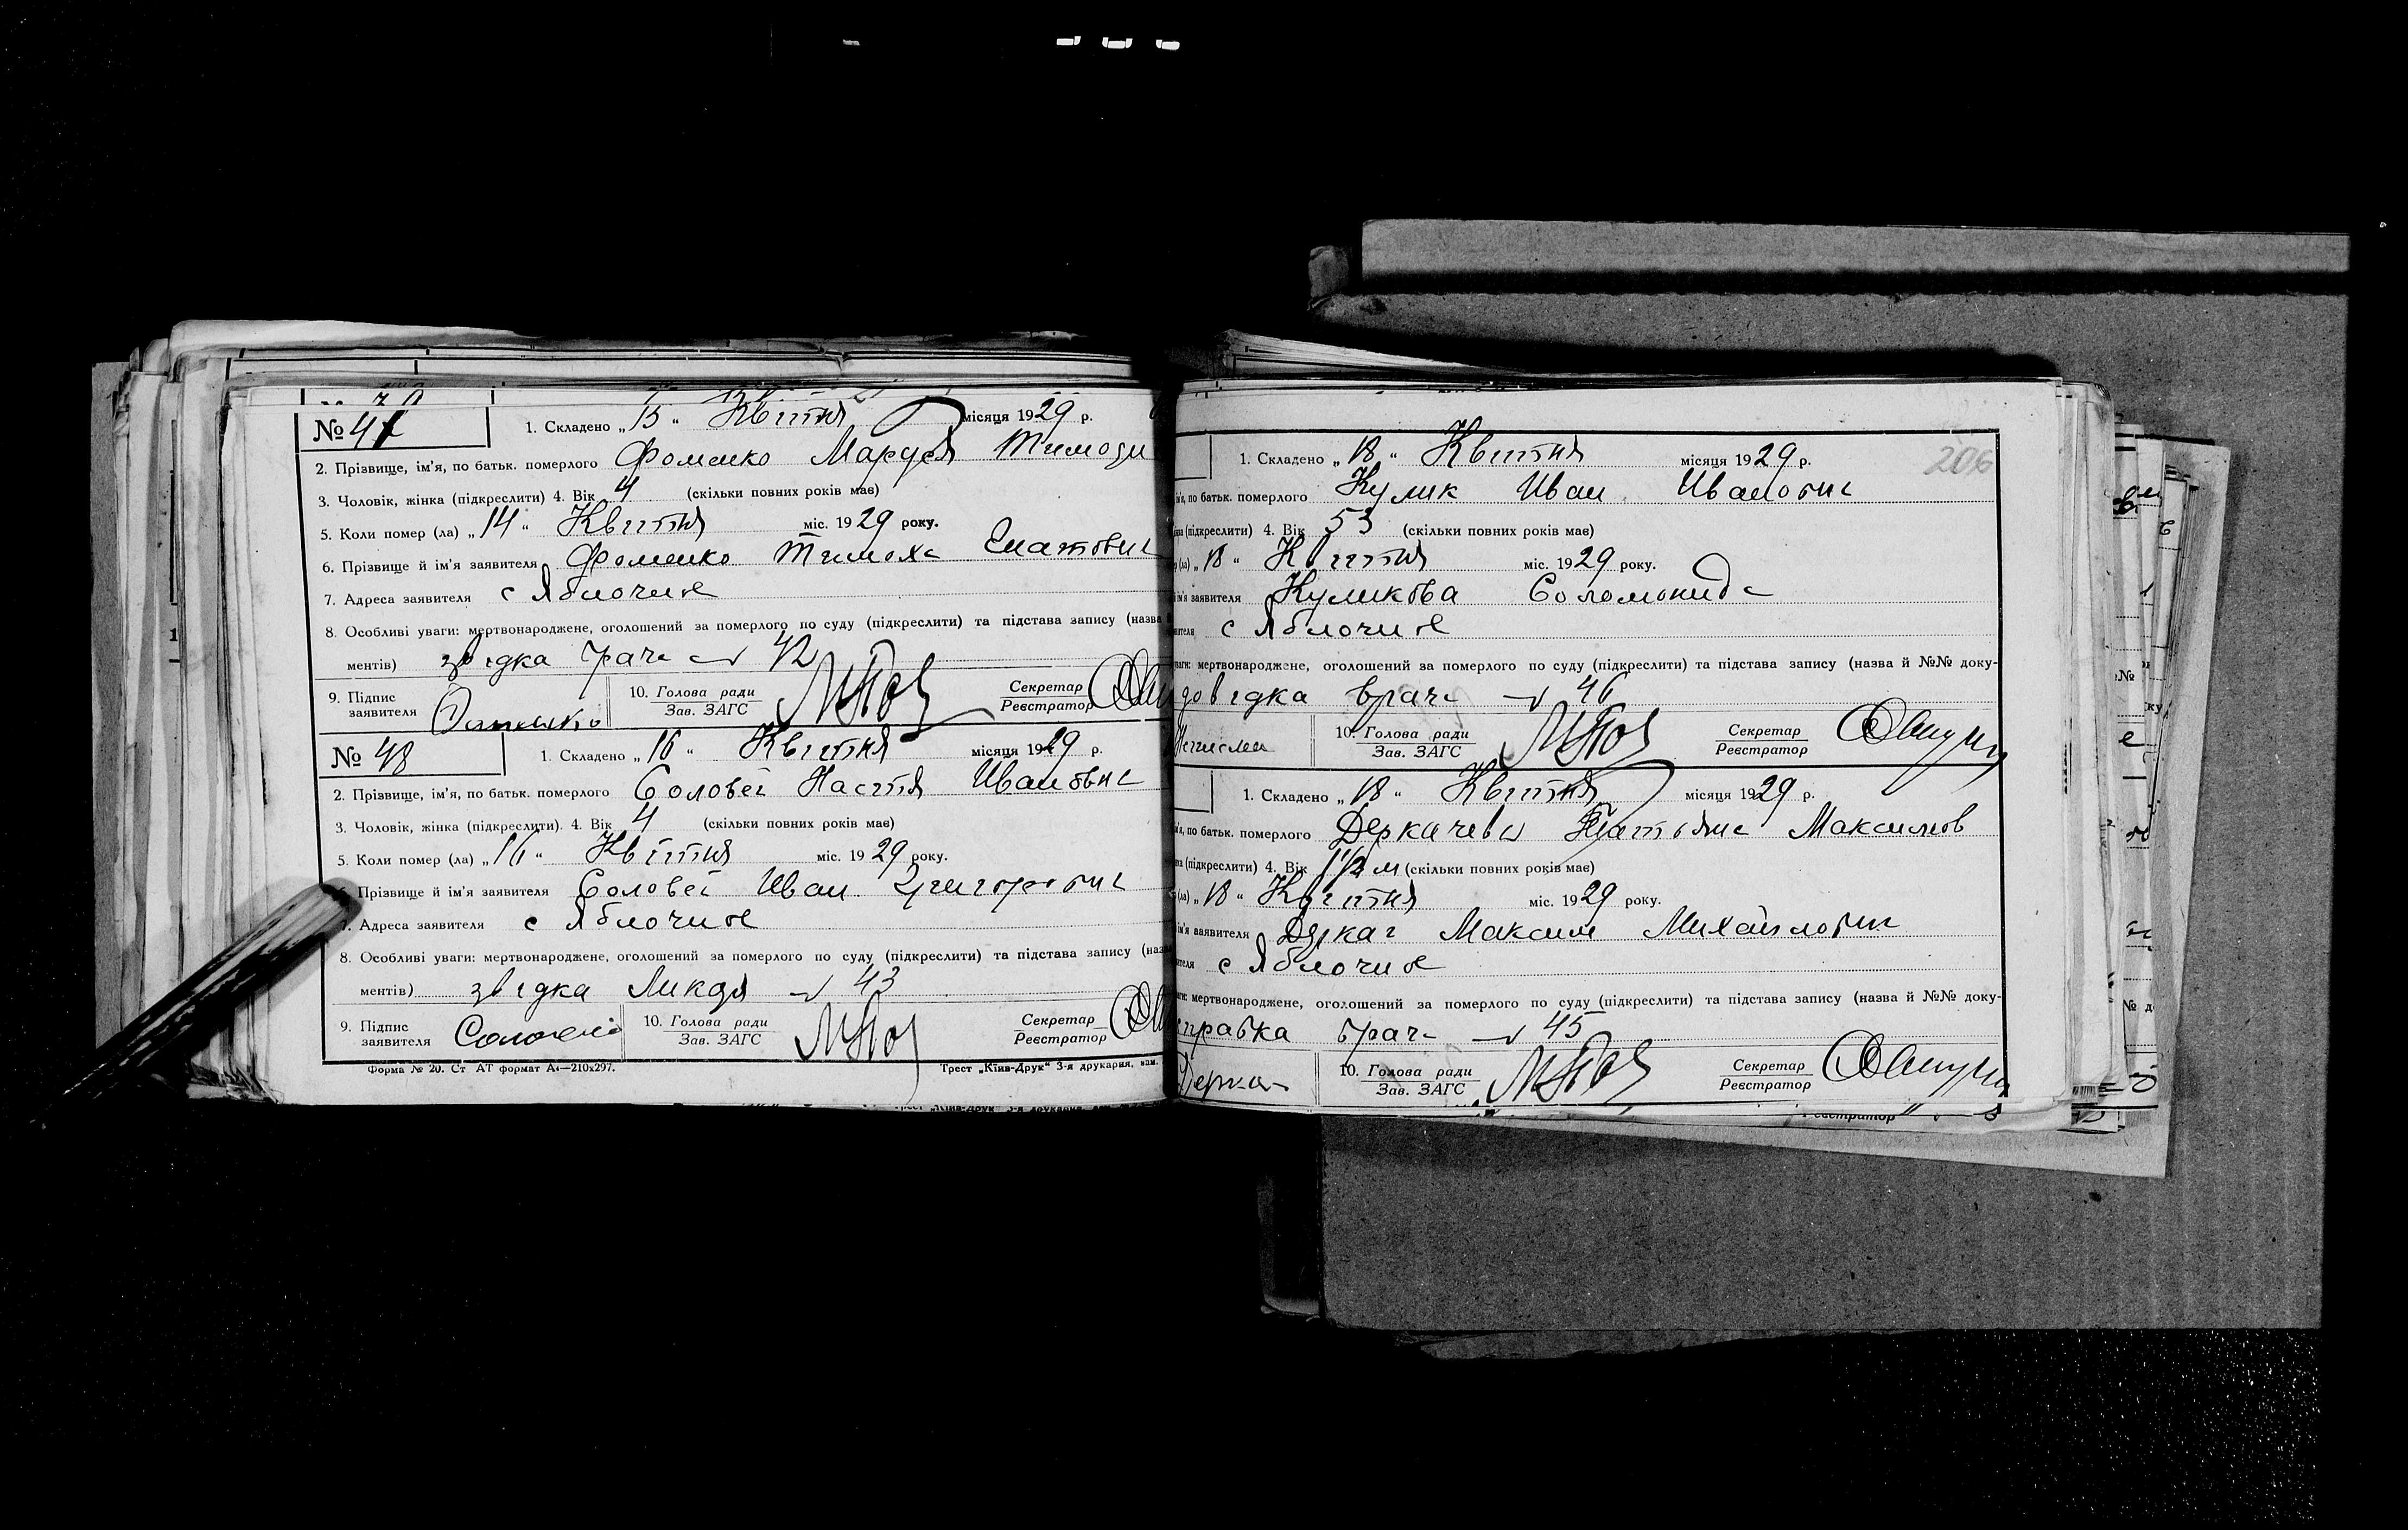 № 47
1. Складено „ 15 “ Квітня місяця 1929 р.
2. Прізвище, ім'я, по батьк. померлого Фоменко Маруся
3. Чоловік, жінка (підкреслити) 4. Вік 4 (скільки повних років має)
5. Коли помер (ла) „ 14 “ Квітня міс. 1929 року.
6. Прізвище й ім'я заявителя Фоменко Тимоха
7. Адреса заявителя с Яблочне
8. Особливі уваги: мертвонароджене, оголошений за померлого по суду (підкреслити) та підстава запису (назва
ментів) звідка врача № 42
9. Підпис заявителя
10. Голова ради
Зав. ЗАГС
Секретар
Реєстратор
№ 48
1. Складено „ 16 “ Квітня місяця 1929 р.
2. Прізвище, ім'я, по батьк. померлого Соловей Настя Ивановнс
3. Чоловік, жінка (підкреслити). 4. Вік 4 (скільки повних років має)
5. Коли помер (ла) „ 16 “ Квітня міс. 1929 року.
Прізвище й ім'я заявителя Соловей Иван Григорович
Адреса заявителя с Яблочне
8. Особливі уваги: мертвонароджене, оголошений за померлого по суду (підкреслити) та підстава запису (назв
ментів) звідка Ликаря № 43
9. Підпис заявителя
10. Голова ради
Зав. ЗАГС
Секретар
Реєстратор
Форма № 20. Ст АТ формат А4—210x297.
Трест „Київ-Друк“ 3-я друкарня.
206
1. Складено „ 18 “ Квітня місяця 1929 р.
по батьк. померлого Кулик Иван Иванович
(підкреслити) 4. Вік 53 (скільки повних років має)
„ 18 “ Квітня міс. 1929 року.
заявителя Куликова Соломонида
с Яблочне
мертвонароджене, оголошений за померлого по суду (підкреслити) та підстава запису (назва й №№ доку-
довідка врача № 46
10. Голова ради
Зав. ЗАГС
Секретар
Реєстратор
1. Складено „ 18 “ Квітня місяця 1929 р.
по батьк. померлого Деркачева Татьяна Максимов
(підкреслити) 4. Вік 1 1/2 м (скільки повних років має)
„ 18 “ Квітня міс. 1929 року.
заявителя Деркач Максим Михайлович
с Яблочне
мертвонароджене, оголошений за померлого по суду (підкреслити) та підстава запису (назва й №№ доку-
справка врача № 45
10. Голова ради
Зав. ЗАГС
Секретар
Реєстратор